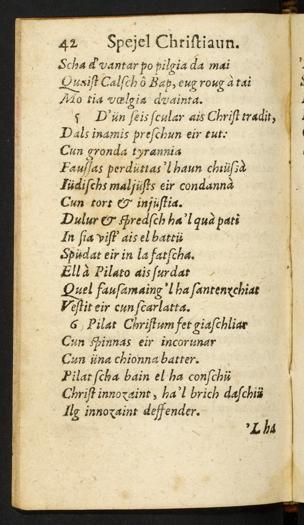 42 Spejel Christiaun.
Scha d'vantar po pilgia da mai
Quaist Calsch ô Bap, eug roug à tai
Mo tia vœlgia dvainta.
5 D'ün seis scular ais Christ tradit,
Dals inamis preschun eir tut:
Cun gronda tyrannia
Faussas perdüttas 'l haun chiüsà
Iüdischs maljüsts eir condannà
Cun tort & injüstia.
Dulur & spredsch ha'l quà pati
In sia vist' ais el battü
Spüdat eir in la fatscha.
Ell à Pilato ais surdat
Quel fausamaing 'l ha santenzchiat
Vestit eir cun scarlatta.
6 Pilat Christum fet giaschliar
Cun spinnas eir incorunar
Cun üna chionna batter.
Pilat scha bain el ha conschü
Christ innozaint, ha'l brich daschiü
Ilg innozaint deffender.
'L ha